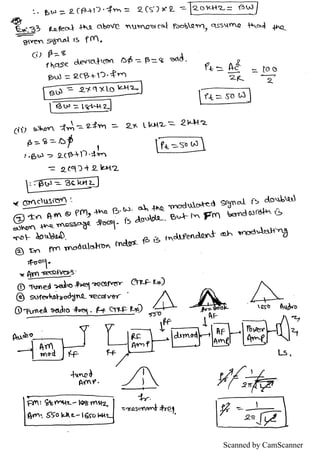 ∴ BW = 2(β+1)·fm = 2(5)×2 = 20KHZ = BW
Ex:33 Repeat the above numerical problem, assume that the
given signal is PM.
(i) β=8
Phase deviation Δφ = β = 8 rad.
BW = 2(β+1)·fm
BW = 2×9×10 kHz
BW = 18kHz
Pt = Ac²/2R = 100/2
Pt = 50 W
(ii) when fm' = 2fm = 2×1kHz = 2kHz
β = 8 = Δφ
Pt = 50W
∴ BW = 2(β+1)·fm
= 2(9) + 2kHz
∴ BW = 36kHz
* conclusion:
① In Am & PM, the B.W. of the modulated signal is doubled
when the message freq. is double. But in Fm bandwidth is
not doubled.
② In pm modulation index β is independent of modulating
freq.
* Am receivers:
① Tuned radio freq receiver (TRF Rx)
② superheterodyne receiver
① Tuned radio freq. Rx (TRF Rx)
550
1650
Audio
RF
AF
Audio
Am mod
RF
RF
RF Amp
demod
AF Amp
Power Amp
Ls.
tuned Amp.
fr.
=resonant freq
Fm: 88mHz - 108mHz
Am: 550kHz - 1650kHz
fr = 1/2π√LC
Scanned by CamScanner